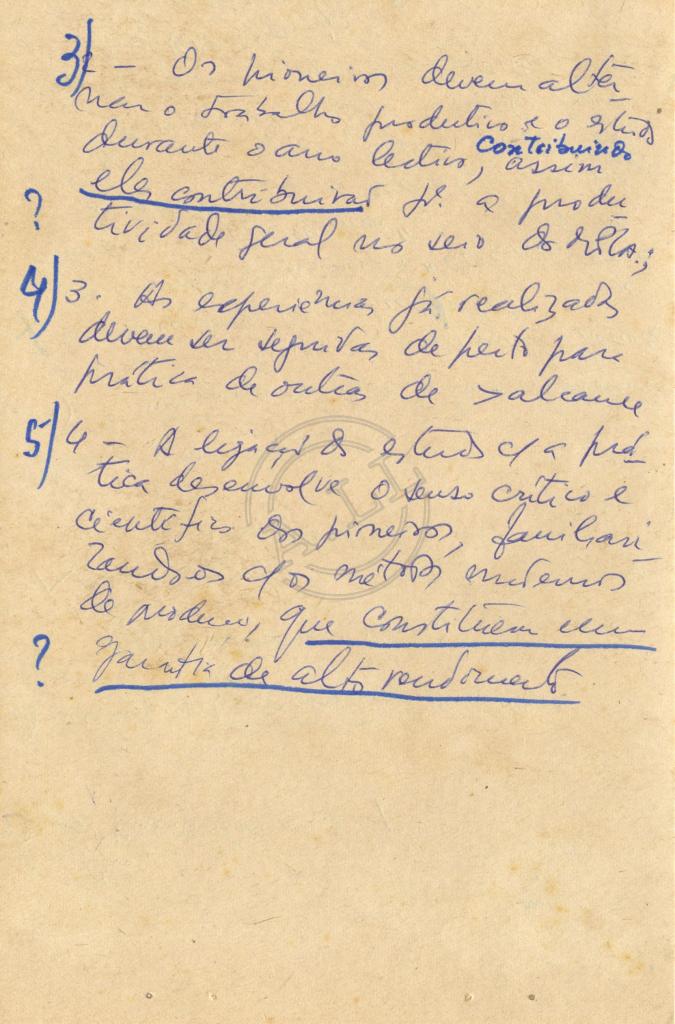 3) - Os pioneiros devem alter-
nar o trabalho produtivo e o estudo
durante o ano lectivo, assim
contribuindo
eles contribuirão pª a produ-
? tividade geral no seio do
4) 3. As experiências já realizadas
devem ser seguidas de perto para
prática de outras de > alcance
5) 4 - A ligação do estudo c/ a prá-
tica desenvolve o senso crítico e
científico dos pioneiros, familiari-
zando-os c/ os métodos modernos
de produção, que constituem uma
? garantia de alto rendimento